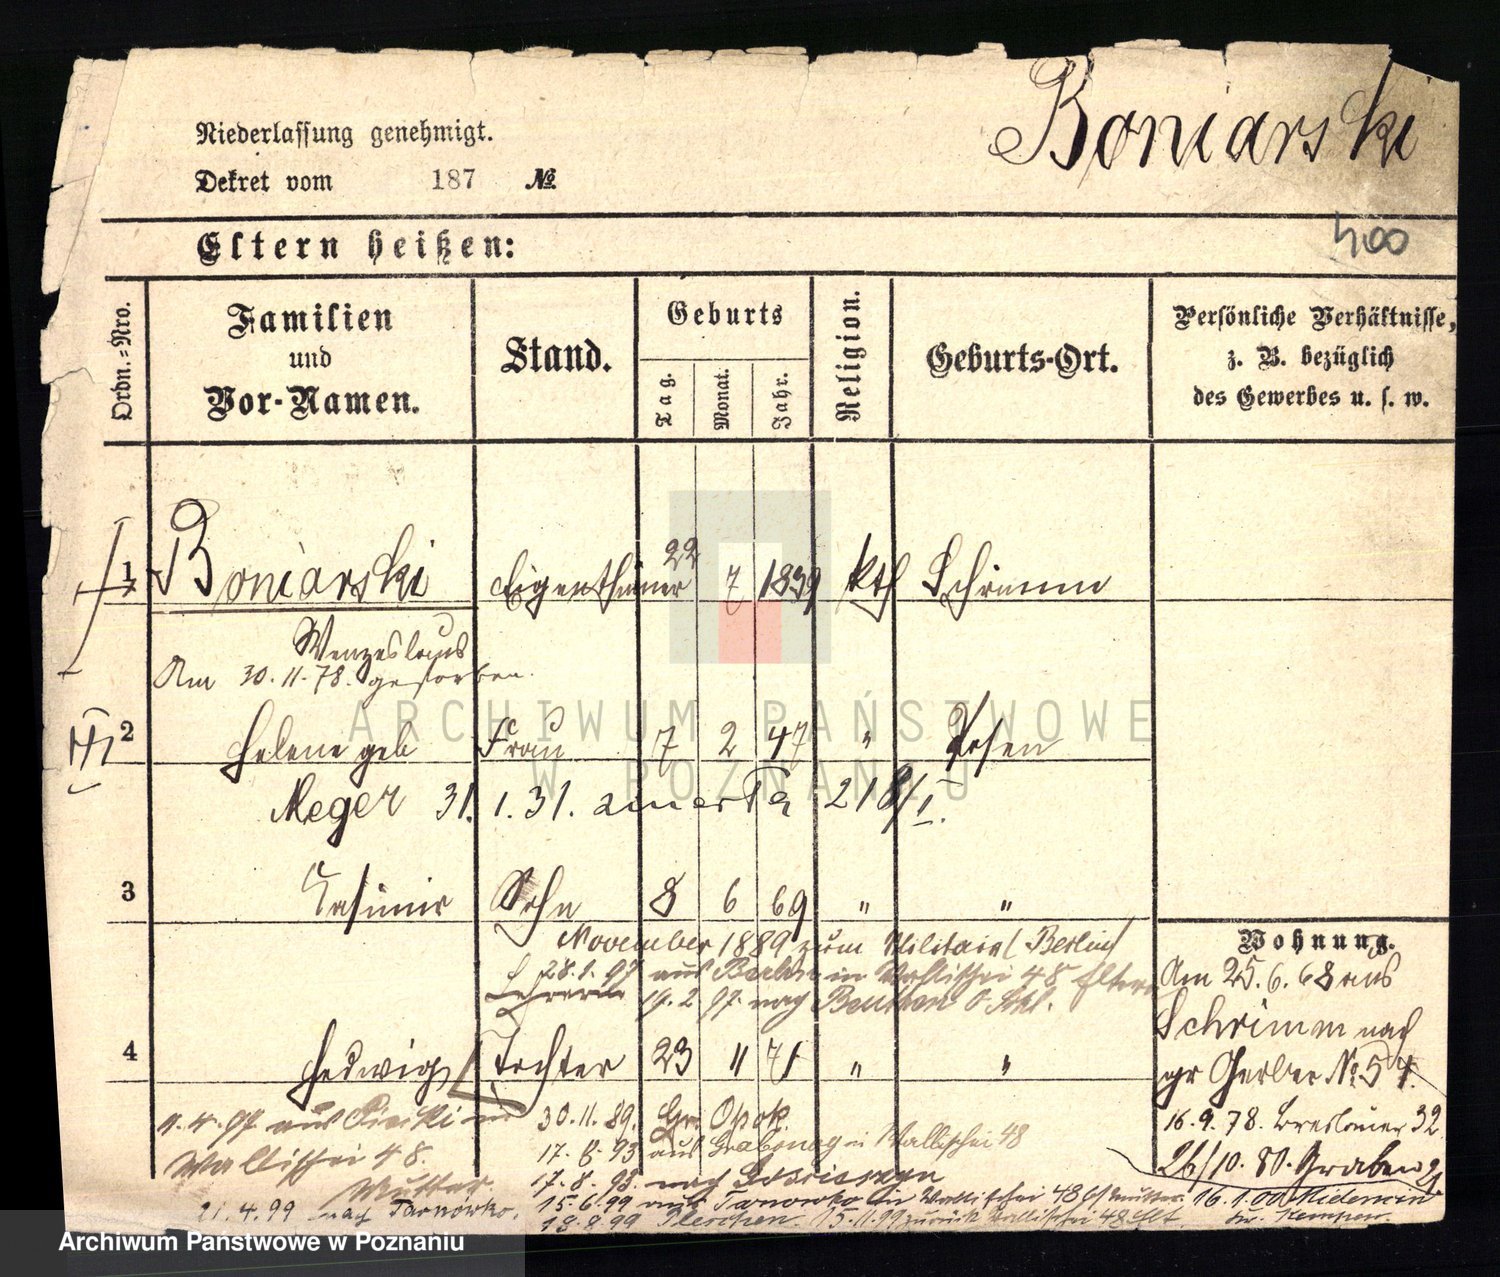 Boniarski
Niederlassung genehmigt.
Dekret vom 187 №
400
Eltern heißen:
Ordn.-Nro.
Familien und Vor-Namen.
Stand.
Geburts
Tag.
Monat.
Jahr.
Religion.
Geburts-Ort.
Persönliche Verhältnisse,
z. B. bezüglich
des Gewerbes u. s. w.
1 Boniarski Eigenthümer 22 7 1839 kth Schrimm
Wenzeslaus
Am 30.11.78. gestorben.
2 Helene geb Frau 7 2 47 " Posen
Meger 31. 1. 31. 218/I.
3 Casimir Sohn 8 6 69 " "
November 1889 zum Militair (Berlin)
28.1.97 aus Berlin in Wallischei 48 Eltern
19.2.97. nach Beuthen O. Schl.
4 Hedwig Tochter 23 11 71 " "
Wohnung.
Am 25.6.68 aus
Schrimm nach
gr Gerber No 54.
16.9.78. Breslauer 32
26/10.80. Graben
1.4.97 aus
Wallischei 48.
Mutter
21.4.99 nach Tarnowko.
30.11.89. Gr. Opok.
17.8.93 aus Wallischei 48
17.8.93. nach
15.6.99 aus Tarnowko in Wallischei 48 b/Mutter
18.8.99 Pleschen 15.11.99 zurück Wallischei 48
16.1.00
Kempen.
ARCHIWUM PAŃSTWOWE
W POZNANIU
Archiwum Państwowe w Poznaniu